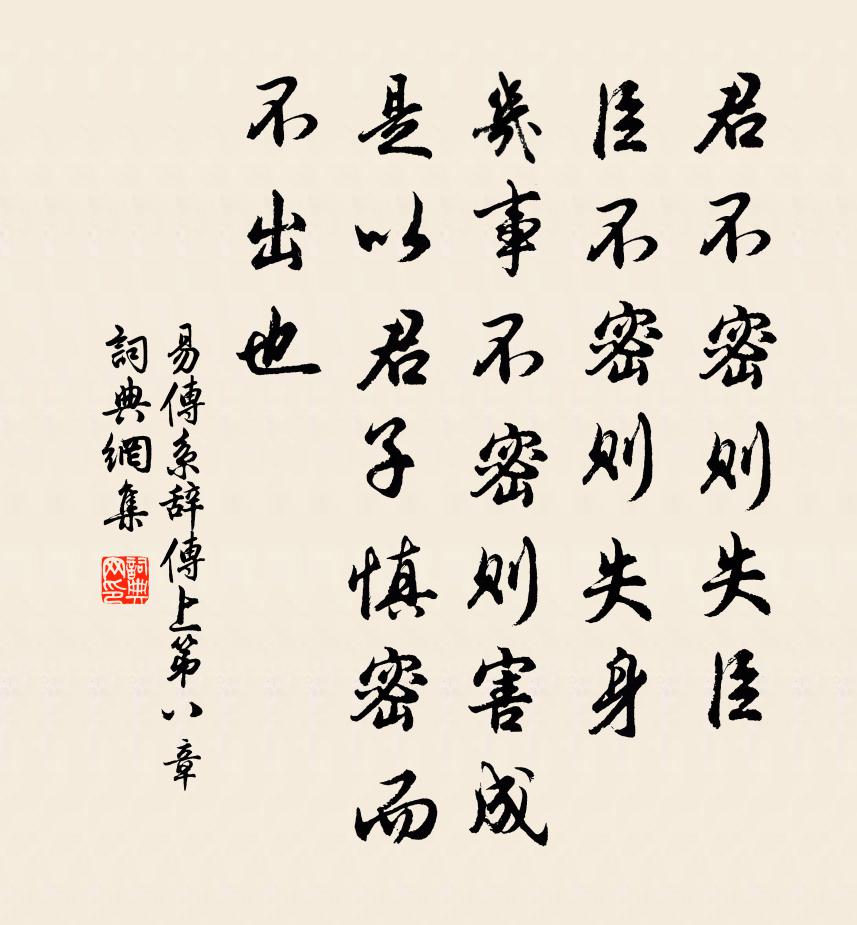 君不密則失臣
臣不密則失身
幾事不密則害成
是以君子慎密而
不出也
易傳系辞傳上第八章
詞典網集
詞典网印